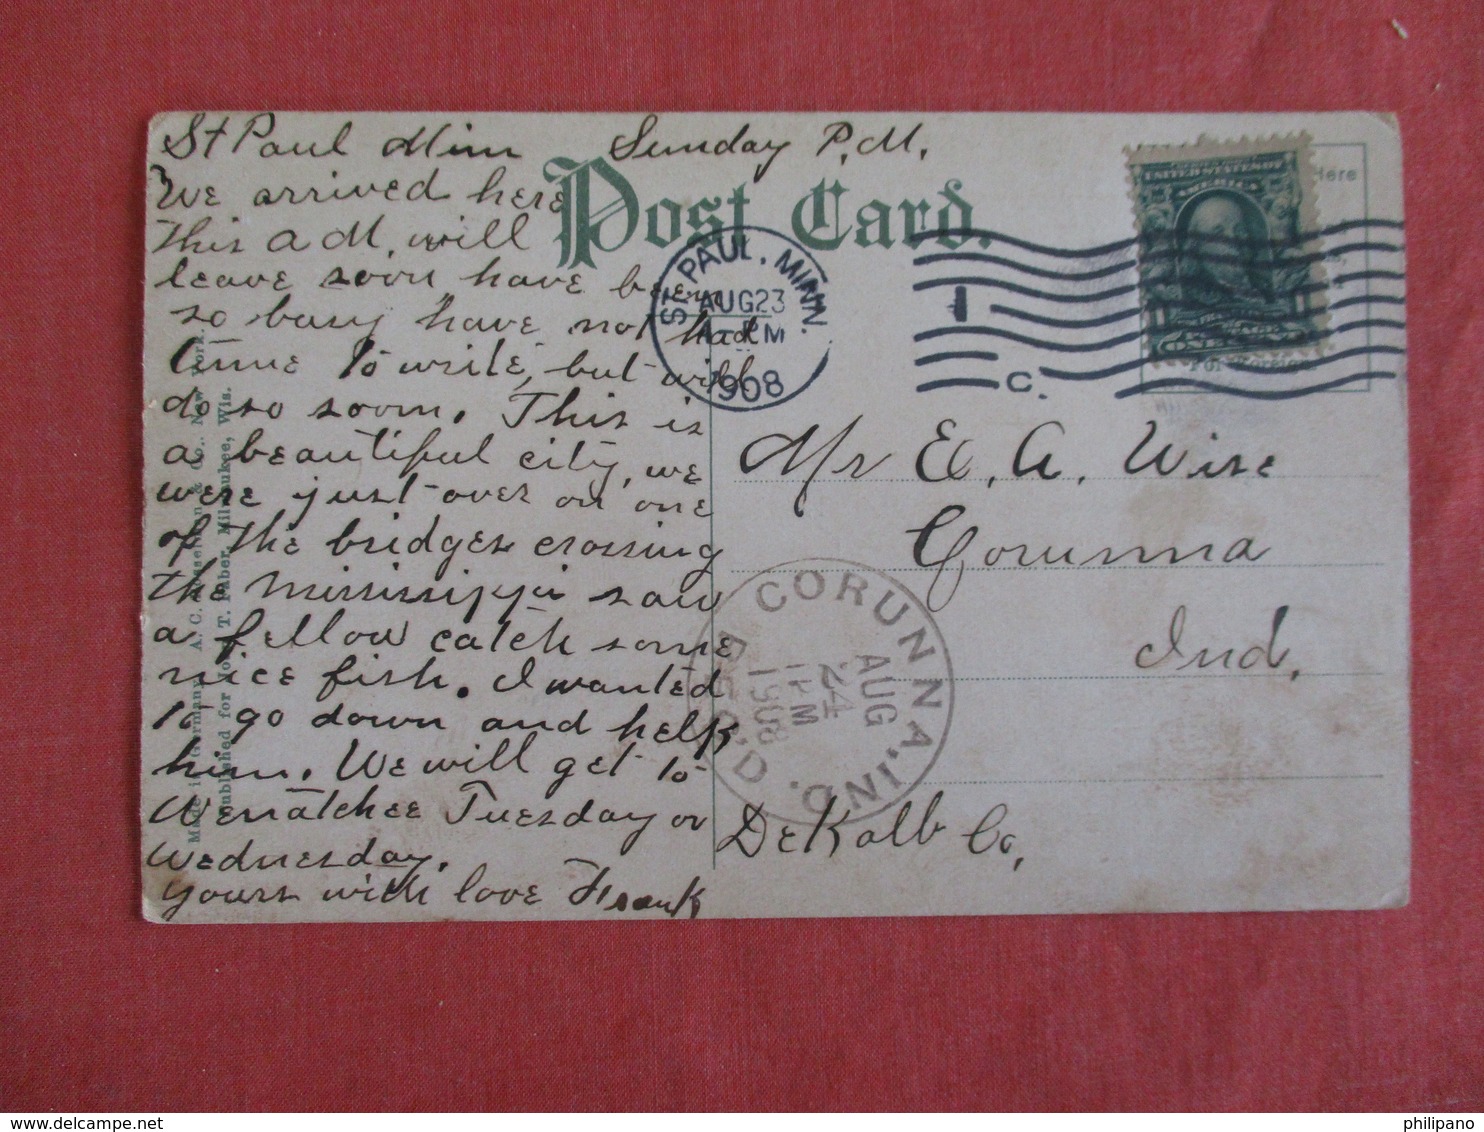 St Paul Minn Sunday P.M.
We arrived here
this A M, will
leave soon have been
so busy have not had
time to write, but will
do so soon. This is
a beautiful city, we
were just over on one
of the bridges crossing
the Mississippi saw
a fellow catch some
nice fish. I wanted
to go down and help
him. We will get to
Wenatchee Tuesday or
Wednesday.
yours with love Frank
Post Card.
ST. PAUL, MINN.
AUG 23
PM
1908
1
C.
Here
UNITED STATES OF
AMERICA
ONE
For Foreign
Mr E. A. Wise
Corunna
Ind.
DeKalb Co,
CORUNNA, IND.
AUG
24
1 PM
1908
REC'D.
Made in Germany. A. C. & Co., New York.
Published for T. Faber, Milwaukee, Wis.
philipano